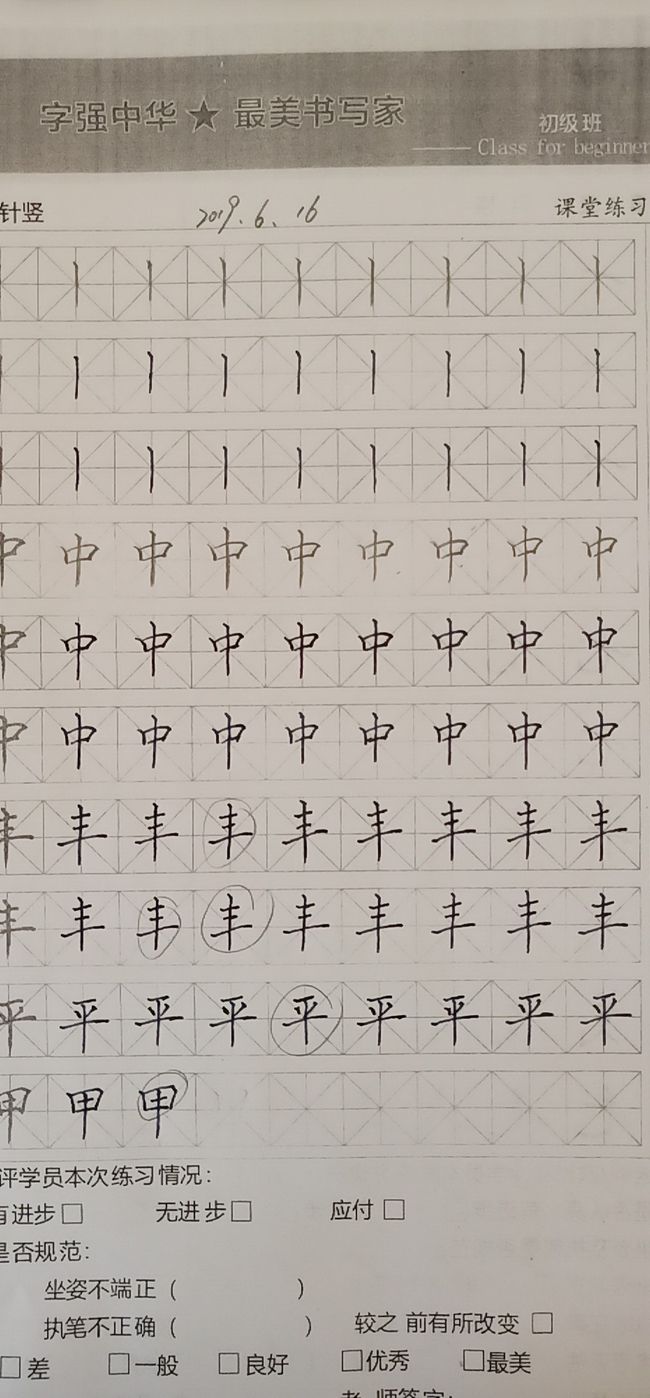 字强中华★最美书写家
初级班
—— Class for beginner
针竖 2019.6.16 课堂练习
中 中 中 中 中 中 中 中 中
中 中 中 中 中 中 中 中 中
中 中 中 中 中 中 中 中 中
丰 丰 丰 丰 丰 丰 丰 丰 丰
丰 丰 丰 丰 丰 丰 丰 丰 丰
平 平 平 平 平 平 平 平 平
甲 甲 甲
评学员本次练习情况:
有进步□ 无进步□ 应付□
是否规范:
坐姿不端正( )
执笔不正确( ) 较之前有所改变□
□差 □一般 □良好 □优秀 □最美
老师签字: